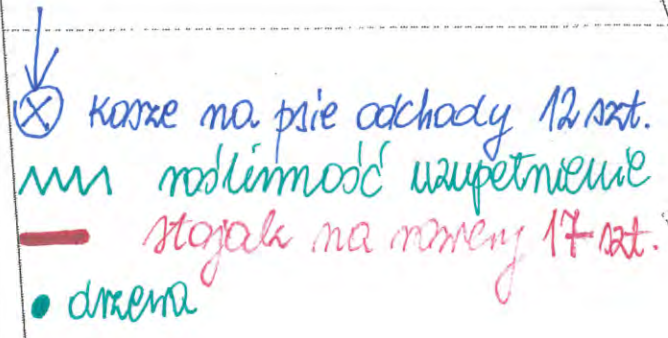 kosze na psie odchody 12 szt.
roślinność uzupełnienie
stojak na rowery 17 szt.
drzewa